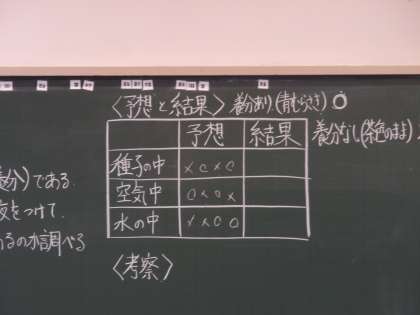 〈予想と結果〉 養分あり(青むらさき) ○
予想 結果 養分なし(茶色のまま)
種子の中 × ○ × ○
空気中 ○ × ○ ×
水の中 × × ○ ○
養分)である.
液をつけて.
あるのか調べる
〈考察〉